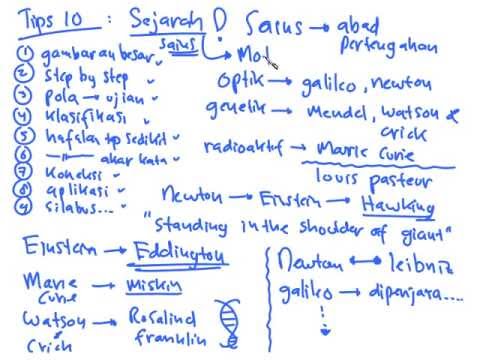 Tips 10 : Sejarah D
① gambaran besar
sains
② step by step
③ pola → ujian
④ klasifikasi
⑤ hafalan tp sedikit
⑥ —"— akar kata
⑦ koneksi
⑧ aplikasi
⑨ silabus...
Sains → abad
pertengahan
→ Mot
optik → galileo, newton
genetik → Mendel, Watson &
Crick
radioaktif → Marie Curie
louis pasteur
Newton → Einstein → Hawking
"standing in the shoulder of giant"
Einstein → Eddington
Marie Curie → miskin
Watson & Crick → Rosalind franklin
Newton ↔ leibniz
galileo → dipenjara....